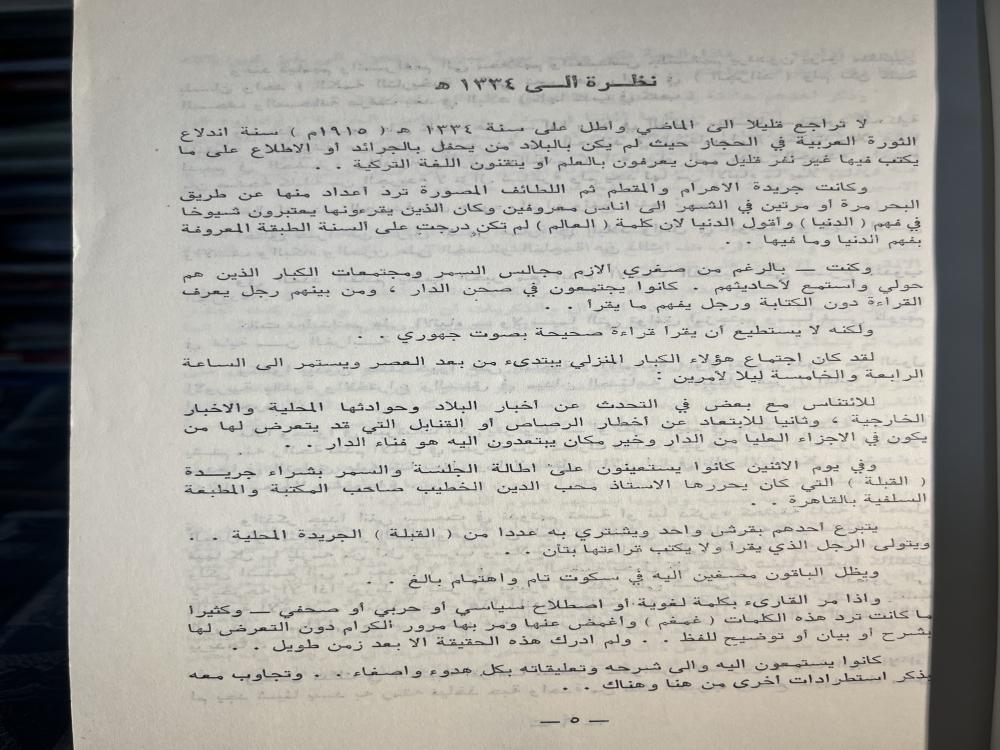 نظرة الى ١٣٣٤ هـ
لا تراجع قليلا الى الماضي واطل على سنة ١٣٣٤ هـ ( ١٩١٥م ) سنة اندلاع
الثورة العربية في الحجاز حيث لم يكن بالبلاد من يحفل بالجرائد او الاطلاع على ما
يكتب فيها غير نفر قليل ممن يعرفون بالعلم او يتقنون اللغة التركية . .
وكانت جريدة الاهرام والمقطم ثم اللطائف المصورة ترد اعداد منها عن طريق
البحر مرة او مرتين في الشهر الى اناس معروفين وكان الذين يقرءونها يعتبرون شيوخا
في فهم ( الدنيا ) واقول الدنيا لان كلمة ( العالم ) لم تكن درجت على السنة الطبقة المعروفة
بفهم الدنيا وما فيها . .
وكنت — بالرغم من صغري الازم مجالس السمر ومجتمعات الكبار الذين هم
حولي واستمع لاحاديثهم . كانوا يجتمعون في صحن الدار ، ومن بينهم رجل يعرف
القراءة دون الكتابة ورجل يفهم ما يقرا . .
ولكنه لا يستطيع ان يقرا قراءة صحيحة بصوت جهوري . .
لقد كان اجتماع هؤلاء الكبار المنزلي يبتدىء من بعد العصر ويستمر الى الساعة
الرابعة والخامسة ليلا لامرين :
للائتناس مع بعض في التحدث عن اخبار البلاد وحوادثها المحلية والاخبار
الخارجية ، وثانيا للابتعاد عن أخطار الرصاص او القنابل التي قد يتعرض لها من
يكون في الاجزاء العليا من الدار وخير مكان يبتعدون اليه هو فناء الدار . .
وفي يوم الاثنين كانوا يستعينون على اطالة الجلسة والسمر بشراء جريدة
( القبلة ) التي كان يحررها الاستاذ محب الدين الخطيب صاحب المكتبة والمطبعة
السلفية بالقاهرة . .
يتبرع احدهم بقرش واحد ويشتري به عددا من ( القبلة ) الجريدة المحلية . .
ويتولى الرجل الذي يقرا ولا يكتب قراءتها بتأن . .
ويظل الباقون مصغين اليه في سكوت تام واهتمام بالغ . .
واذا مر القارىء بكلمة لغوية او اصطلاح سياسي او حربي أو صحفي — وكثيرا
ما كانت ترد هذه الكلمات ( غمغم ) واغمض عنها ومر بها مرور الكرام دون التعرض لها
بشرح او بيان أو توضيح للفظ . . ولم ادرك هذه الحقيقة الا بعد زمن طويل . .
كانوا يستمعون اليه والى شرحه وتعليقاته بكل هدوء واصغاء . . وتجاوب معه
بذكر استطرادات اخرى من هنا وهناك . .
— ٥ —